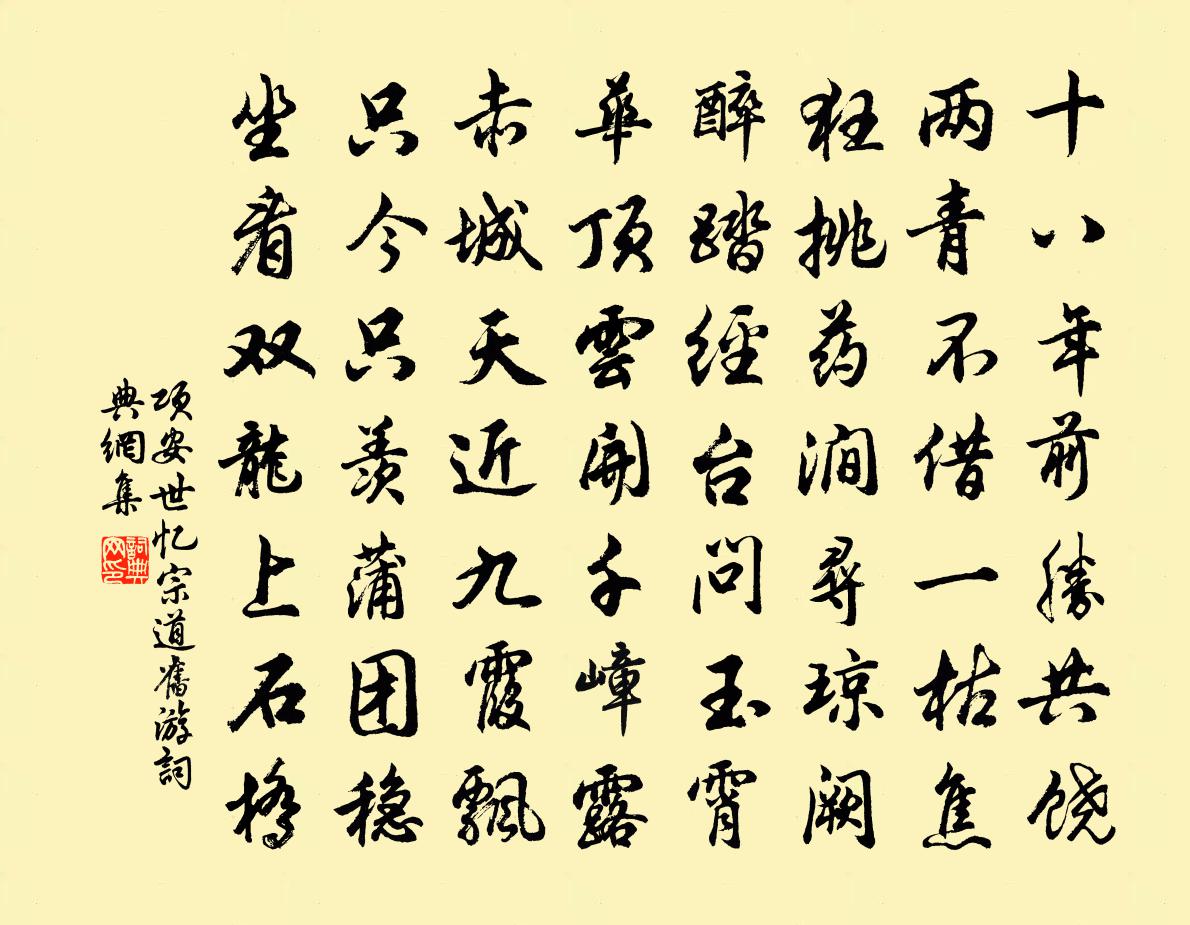 十八年前勝共饶
两青不借一枯焦
狂挑药涧尋琼阙
醉踏经台问玉霄
華顶雲開千嶂露
赤城天近九霞飄
只今只羡蒲团稳
坐看双龍上石橋
项安世忆宗道舊游詞
典網集
詞典网印